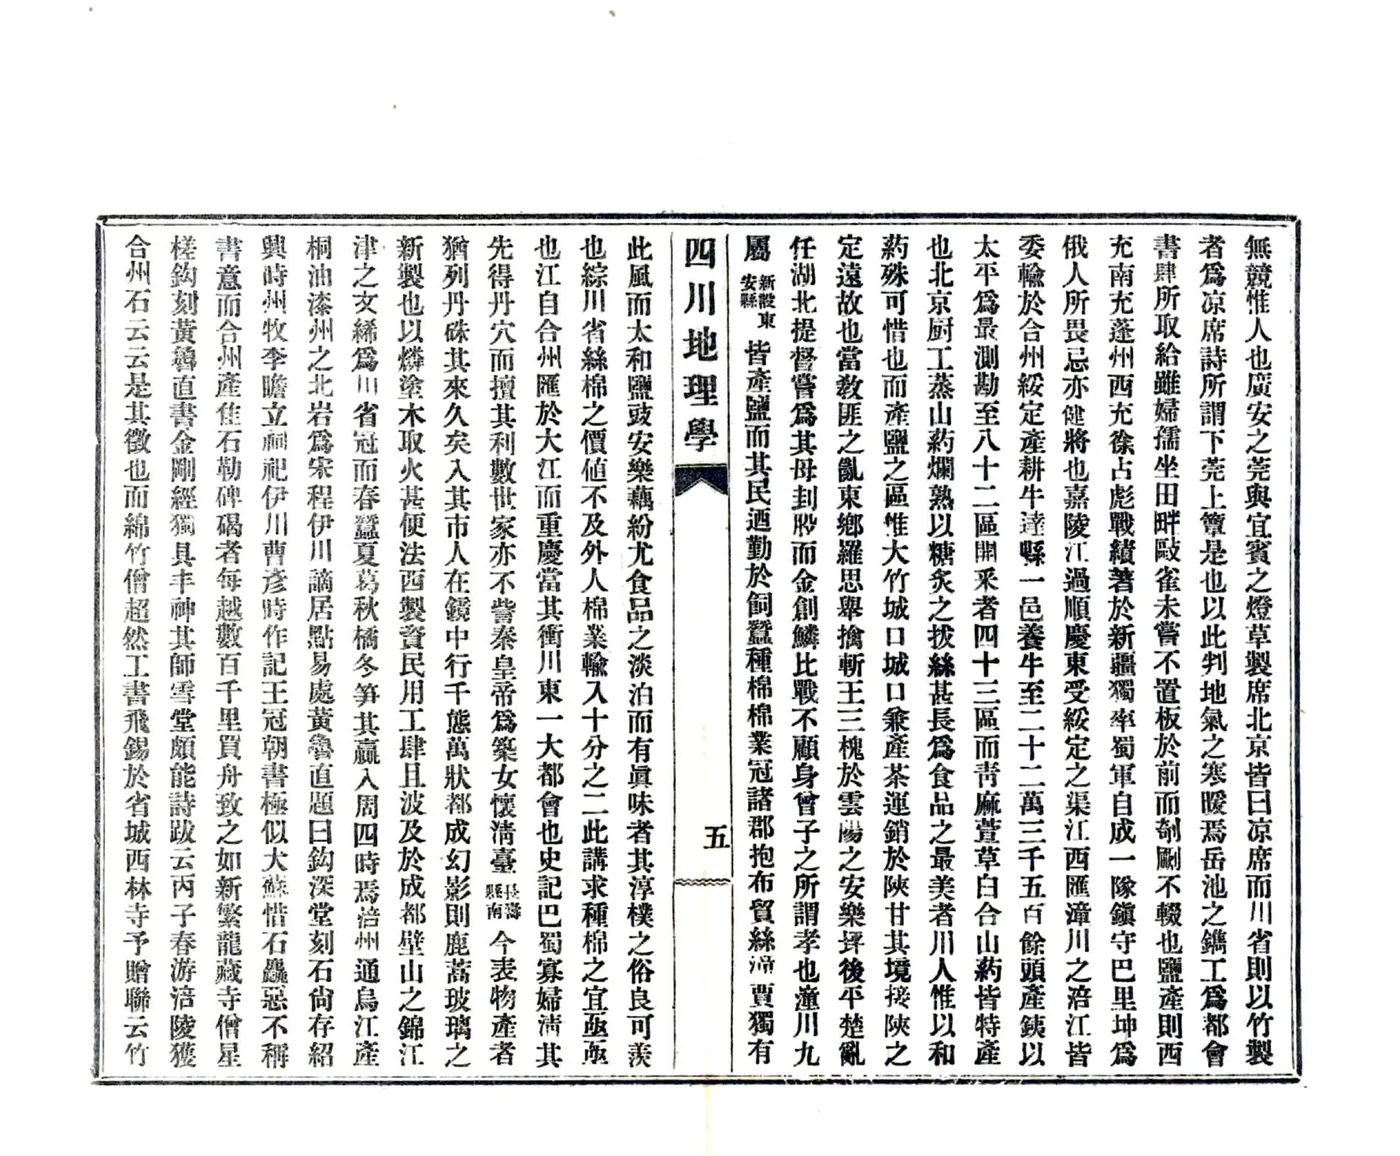 無競惟人也廣安之莞與宜賓之燈草製席北京皆曰凉席而川省則以竹製
者爲凉席詩所謂下莞上簟是也以此判地氣之寒暖焉岳池之鐫工爲都會
書肆所取給雖婦孺坐田畔敺雀未嘗不置板於前而剞劂不輟也鹽產則西
充南充蓬州西充徐占彪戰績著於新疆獨率蜀軍自成一隊鎭守巴里坤爲
俄人所畏忌亦健將也嘉陵江過順慶東受綏定之渠江西匯漳川之涪江皆
委輸於合州綏定產耕牛達縣一邑養牛至二十二萬三千五百餘頭產銕以
太平爲最測勘至八十二區開釆者四十三區而靑麻萱草白合山葯皆特產
也北京厨工蒸山葯爛熟以糖炙之拔絲甚長爲食品之最美者川人惟以和
葯殊可惜也而產鹽之區惟大竹城口城口兼產茶運銷於陝甘其境接陝之
定遠故也當敎匪之亂東鄉羅思舉擒斬王三槐於雲陽之安樂坪後平楚亂
任湖北提督嘗爲其母刲股而金創鱗比戰不顧身曾子之所謂孝也潼川九
屬新設東安縣皆產鹽而其民迺勤於飼蠶種棉棉業冠諸郡抱布貿絲潼賈獨有
四川地理學
五
此風而太和鹽豉安樂藕紛尤食品之淡泊而有眞味者其淳樸之俗良可羨
也綜川省絲棉之價値不及外人棉業輸入十分之二此講求種棉之宜亟亟
也江自合州匯於大江而重慶當其衝川東一大都會也史記巴蜀寡婦淸其
先得丹穴而擅其利數世家亦不訾秦皇帝爲築女懷淸臺長壽縣南今表物產者
猶列丹硃其來久矣入其市人在鏡中行千態萬狀都成幻影則鹿蒿玻璃之
新製也以燐塗木取火甚便法西製資民用工肆且波及於成都壁山之錦江
津之攵絺爲川省冠而春蠶夏葛秋橘冬笋其贏入周四時焉涪州通烏江產
桐油漆州之北岩爲宋程伊川謫居點易處黃魯直題曰鈎深堂刻石尙存紹
興時州牧李瞻立祠祀伊川曹彥時作記王冠朝書極似大蘇惜石麤惡不稱
書意而合州產佳石勒碑碣者每越數百千里買舟致之如新繁龍藏寺僧星
槎鈎刻黃魯直書金剛經獨具丰神其師雪堂頗能詩跋云丙子春游涪陵獲
合州石云云是其徵也而綿竹僧超然工書飛錫於省城西林寺予贈聯云竹